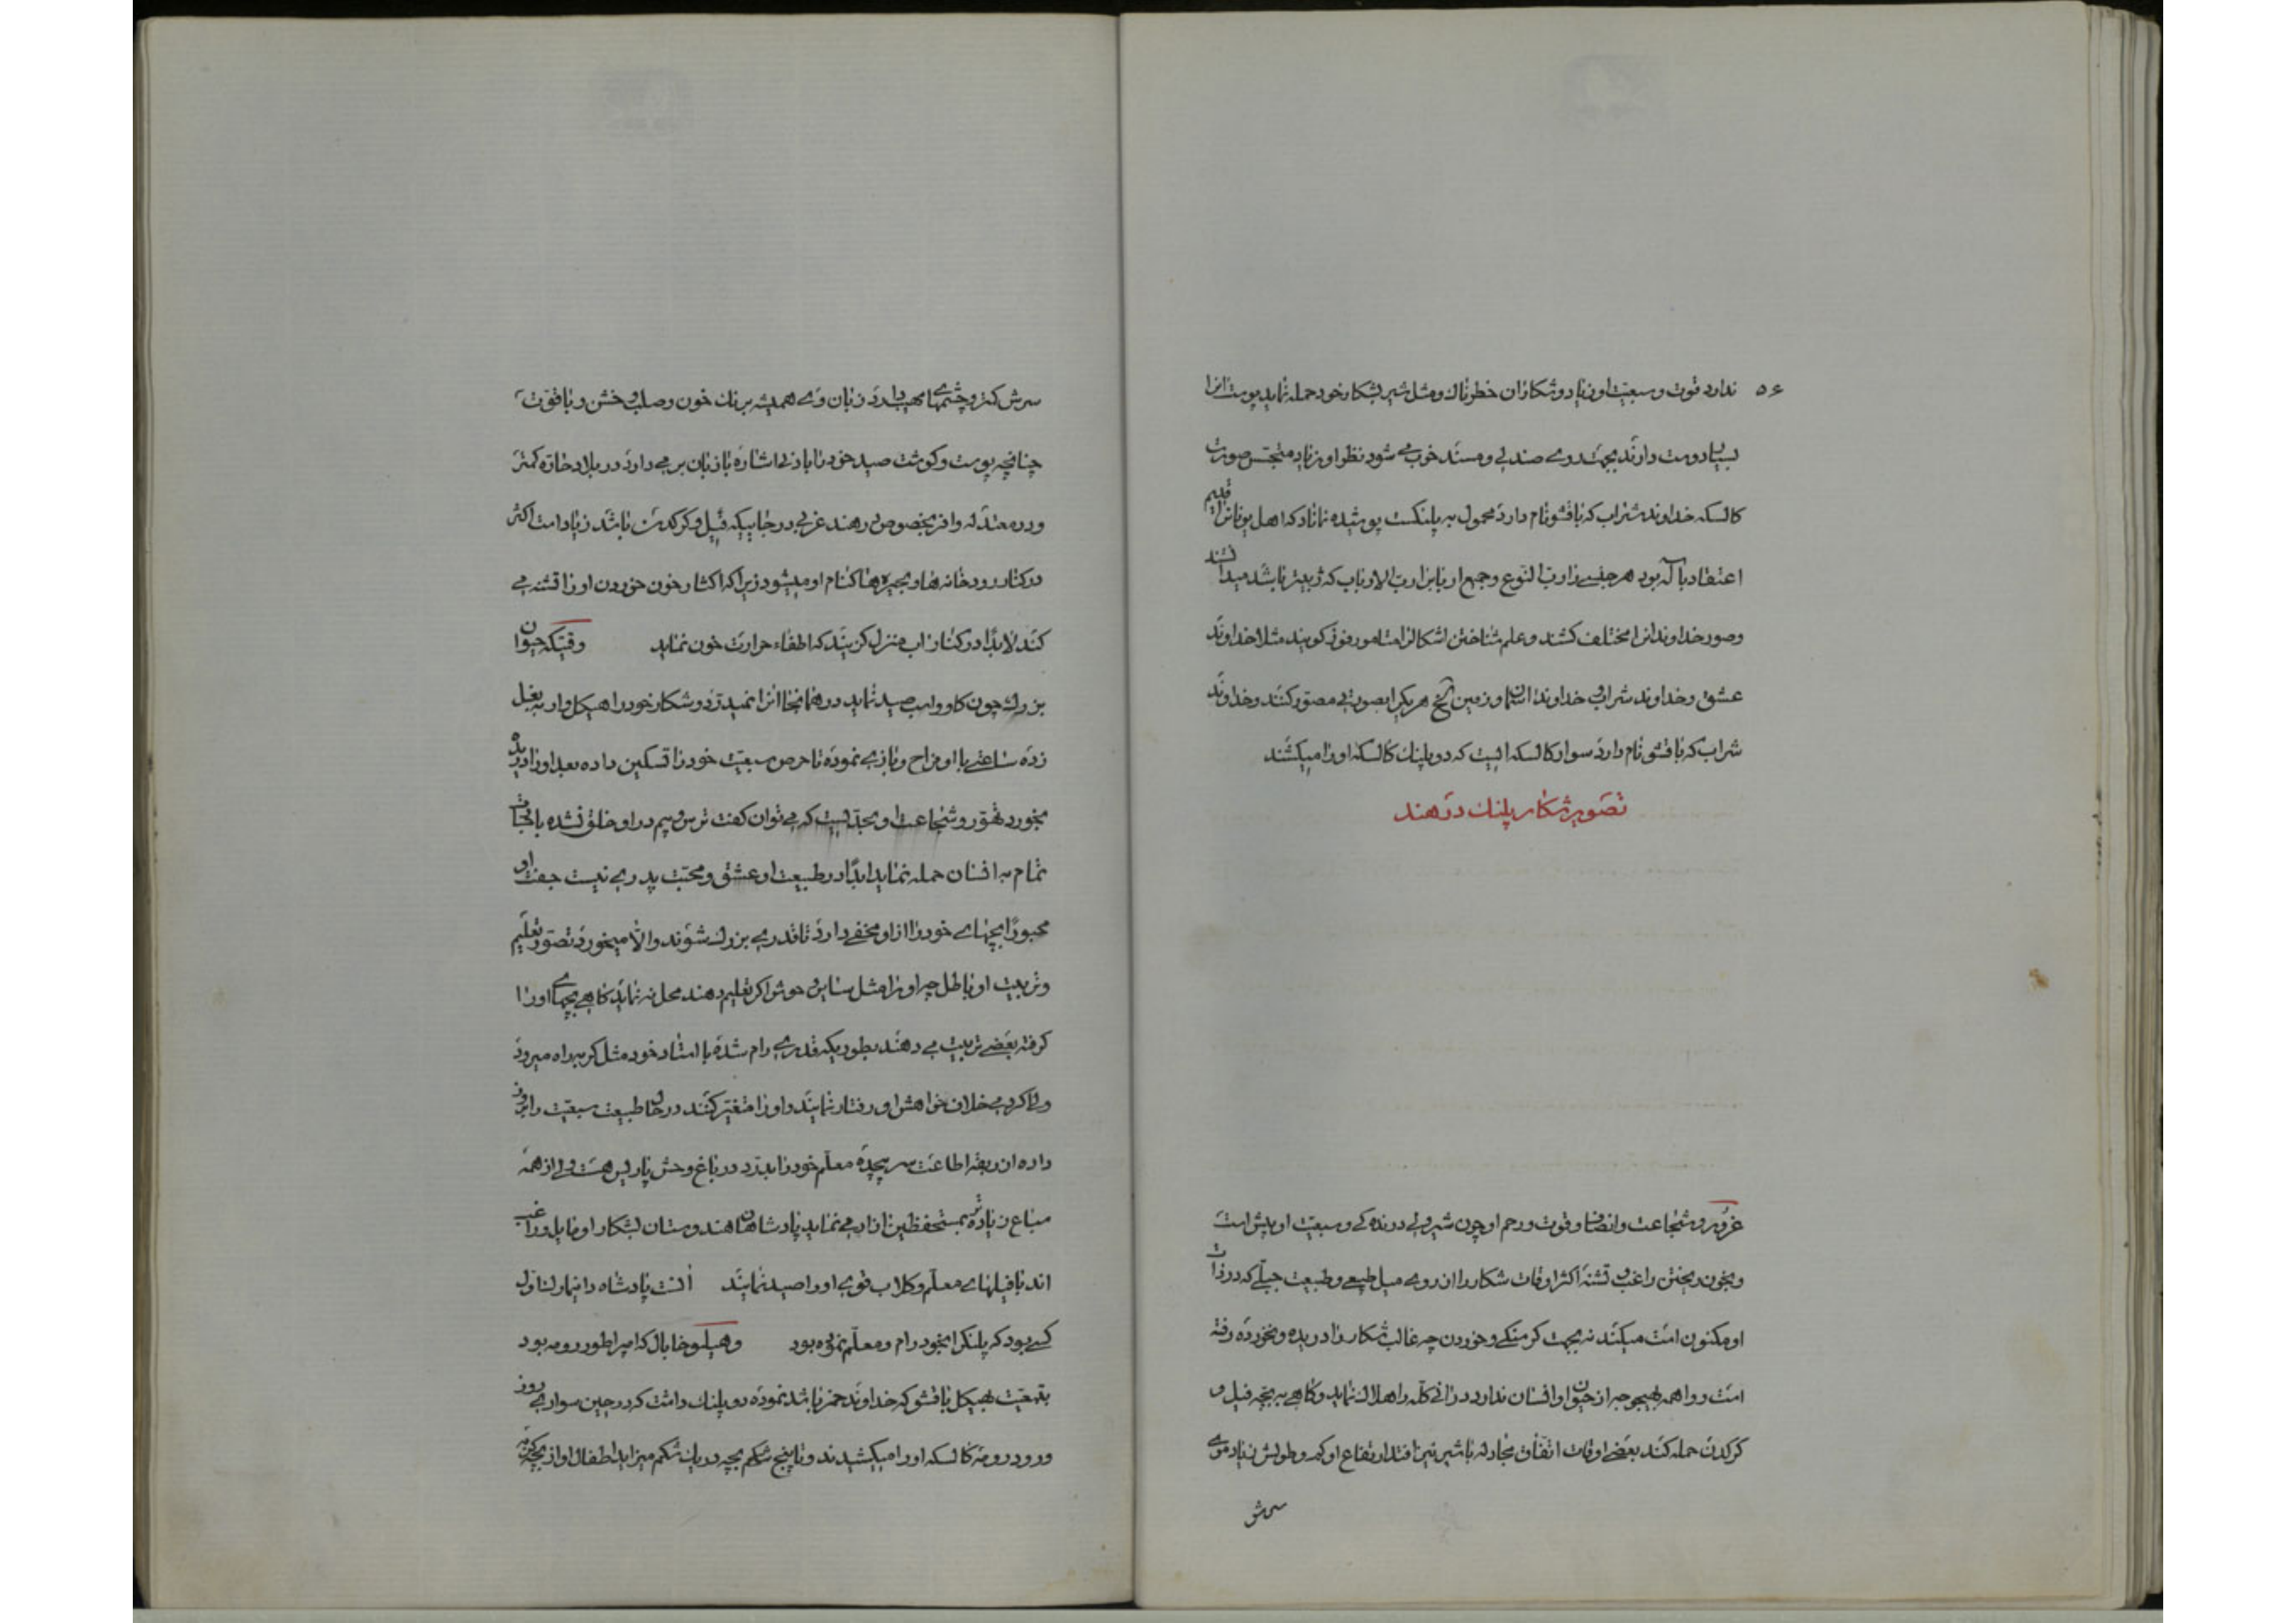 ۵۶ ندارد قوت و سبعیت او زیاد و شکار آن خطرناک و مثل شیر بشکار خود حمله نماید پوست انرا
بسیار دوست دارند بجهت روی صندلی و مسند خوب می شود نظر او زیاد متجسس صورت
کالسکه خداوند شراب که باقشو نام دارد محمول به پلنگست پوشیده نماناد که اهل یونانرا قدیم
اعتقاد بآلهه بود هر جنسی را رب النوع و جمیع اربابرا رب الارباب که ژپیتر باشد میدانستند
وصور خداوندانرا مختلف کشند و علم شناختن اشکال انرا متامورفوز کویند مثلا خداوند
عشق و خداوند شراب و خداوند اسمان و زمین الخ هر یکرا بصورتی مصور کنند و خداوند
شراب که باقشو نام دارد سوار کالسکه ایست که دو پلنک کالسکه او را میکشند
تصویر شکار پلنک در هند
غرور و شجاعت و انصاف و قوت و رحم او چون شیر ولی درنده کی و سبعیت او بیش است
و بخون ریختن راغب و تشنه اکثر اوقات شکار را از روی میل طبیعی و طبیعت جبلی که در ذات
او مکنون است میکند نه بجهت کرسنکی و خوردن چه غالب شکار را دریده و نخورده رفته
است و واهمه بهیچوجه از حیوان و انسان ندارد در آنی کله را هلاک نماید و کاهی به بچه فیل و
کرکدن حمله کند بعضی اوقات اتفاق مجادله با شیر نیز افتد ارتفاع او کم و طولش زیاد موی
سرش
سرش کمتر و چشمهای مهیب دارد زبان وی همیشه برنک خون و صلب و خشن و با قوت
چنانچه پوست و کوشت صید خود را بادنی اشاره با زبان بر می دارد در بلاد حاره کمتر
و در معتدله وافر بخصوص در هند غربی در جاییکه فیل و کرکدن باشد زیاد است اکثر
در کنار رودخانه ها و بحیره ها کنام او میشود زیرا که اکثار خون خوردن او را تشنه می
کند لابدا در کنار اب منزل کزیند که اطفاء حرارت خون نماید وقتیکه حیوان
بزرک چون کاو و اسب صید نماید در همانجا انرا نمیدرد و شکار خود را هیکل وار به بغل
زده ساعتی با او مزاح و بازی نموده تا حرص سبعیت خود را تسکین داده بعد او را دریده
بخورد تهور و شجاعت او بحدیست که می توان کفت ترس و بیم در او خلق نشده با
تمام به انسان حمله نماید ابدا در طبیعت او عشق و محبت پدری نیست جفت او
مجبورا بچهای خود را از او مخفی دارد تا قدری بزرک شوند والا میخورد تصور تعلیم
و تربیت او باطل چه او را مثل سایر وحوش اکر تعلیم دهند محل نه نماید کاهی بچهای او را
کرفته بعضی تربیت می دهند بطوریکه قدری رام شده با استاد خود مثل کربه راه میرود
ولی اکر دمی خلاف خواهش او رفتار نمایند و او را متغیر کنند در حال طبیعت سبعیت را بروز
داده از ربقه اطاعت سر پیچیده معلم خود را بدرد در باغ وحش پاریس هست ولی از همه
سباع زیادتر بمستحفظین اذیت می نماید پادشاهان هندوستان بشکار او مایل و راغب
اند با فیلهای معلم و کلاب قوی او را صید نمایند پادشاه اول
کسی بود که پلنکرا بخود رام و معلم نموده بود و هیلوخابال که امپراطور رومه بود
بتبعیت هیکل باقشو که خداوند خمر باشد نموده دو پلنک داشت که در حین سواری روز
ورود رومه کالسکه او را میکشیدند و تا پنج شکم بچه در یک شکم میزاید اطفال او از بچه کربه